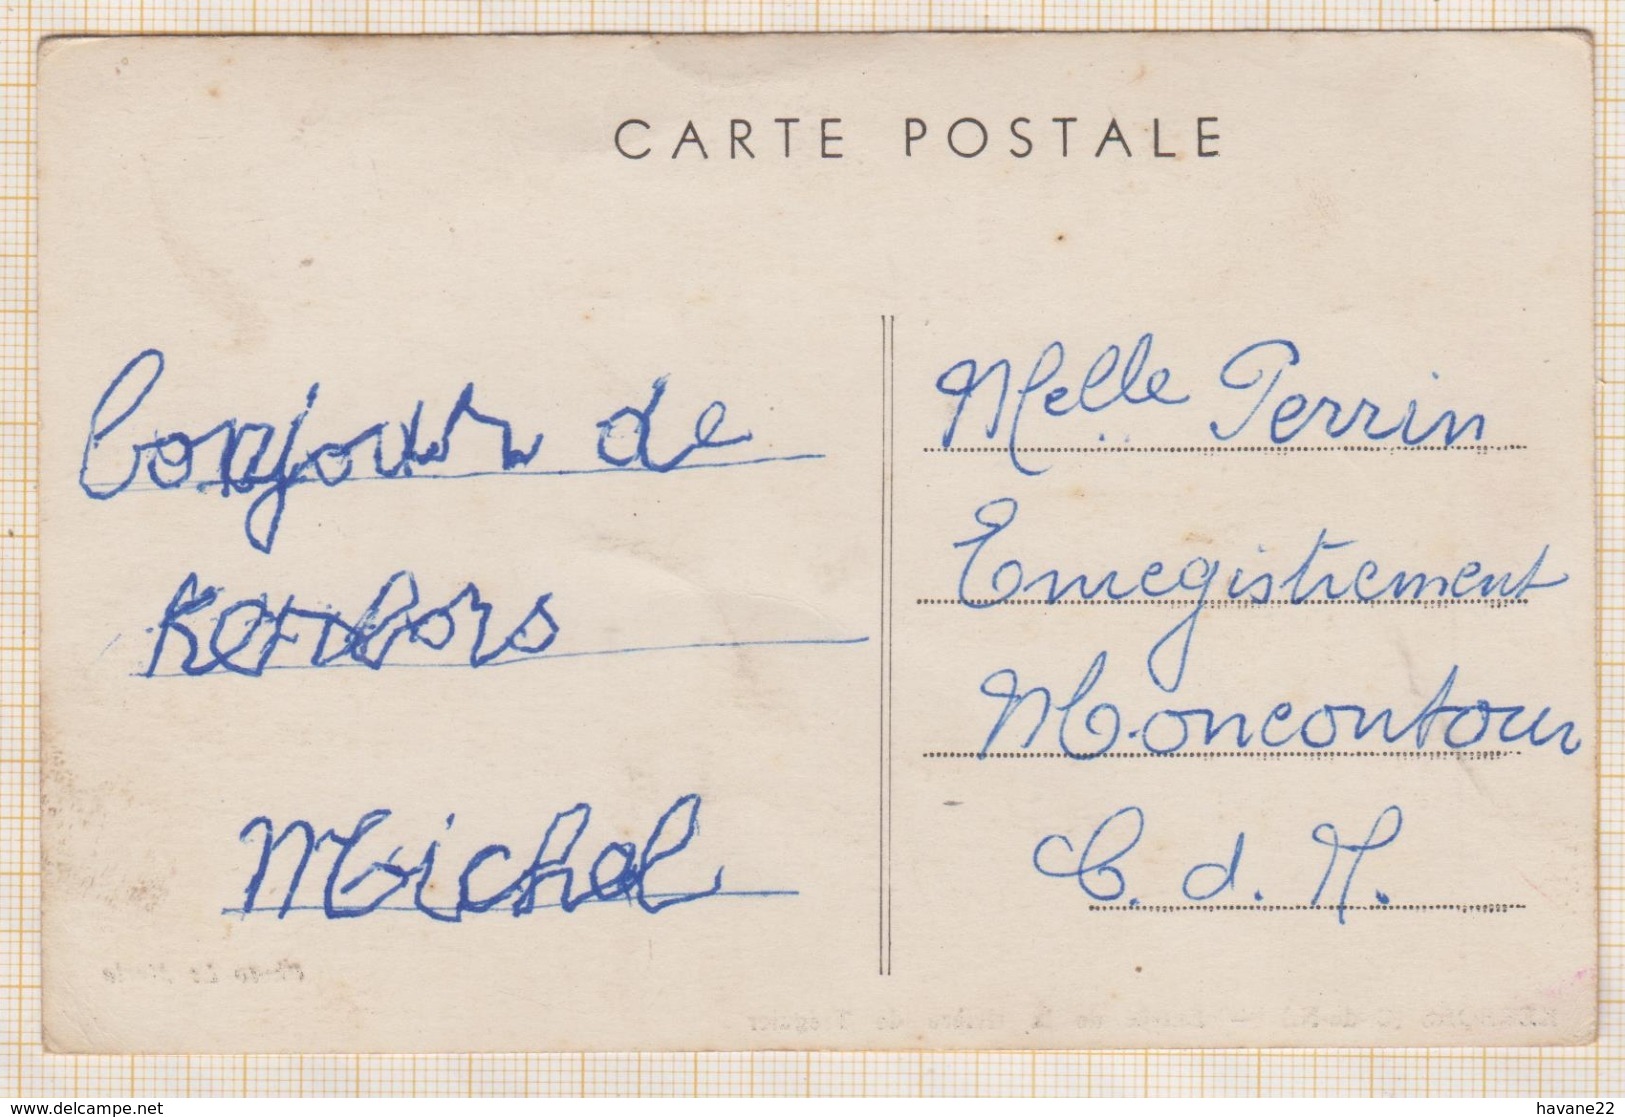 CARTE POSTALE
bonjour de
Kerbors
Michel
Melle Perrin
Enregistrement
Moncontour
C. d. N.
www.delcampe.net
havane22